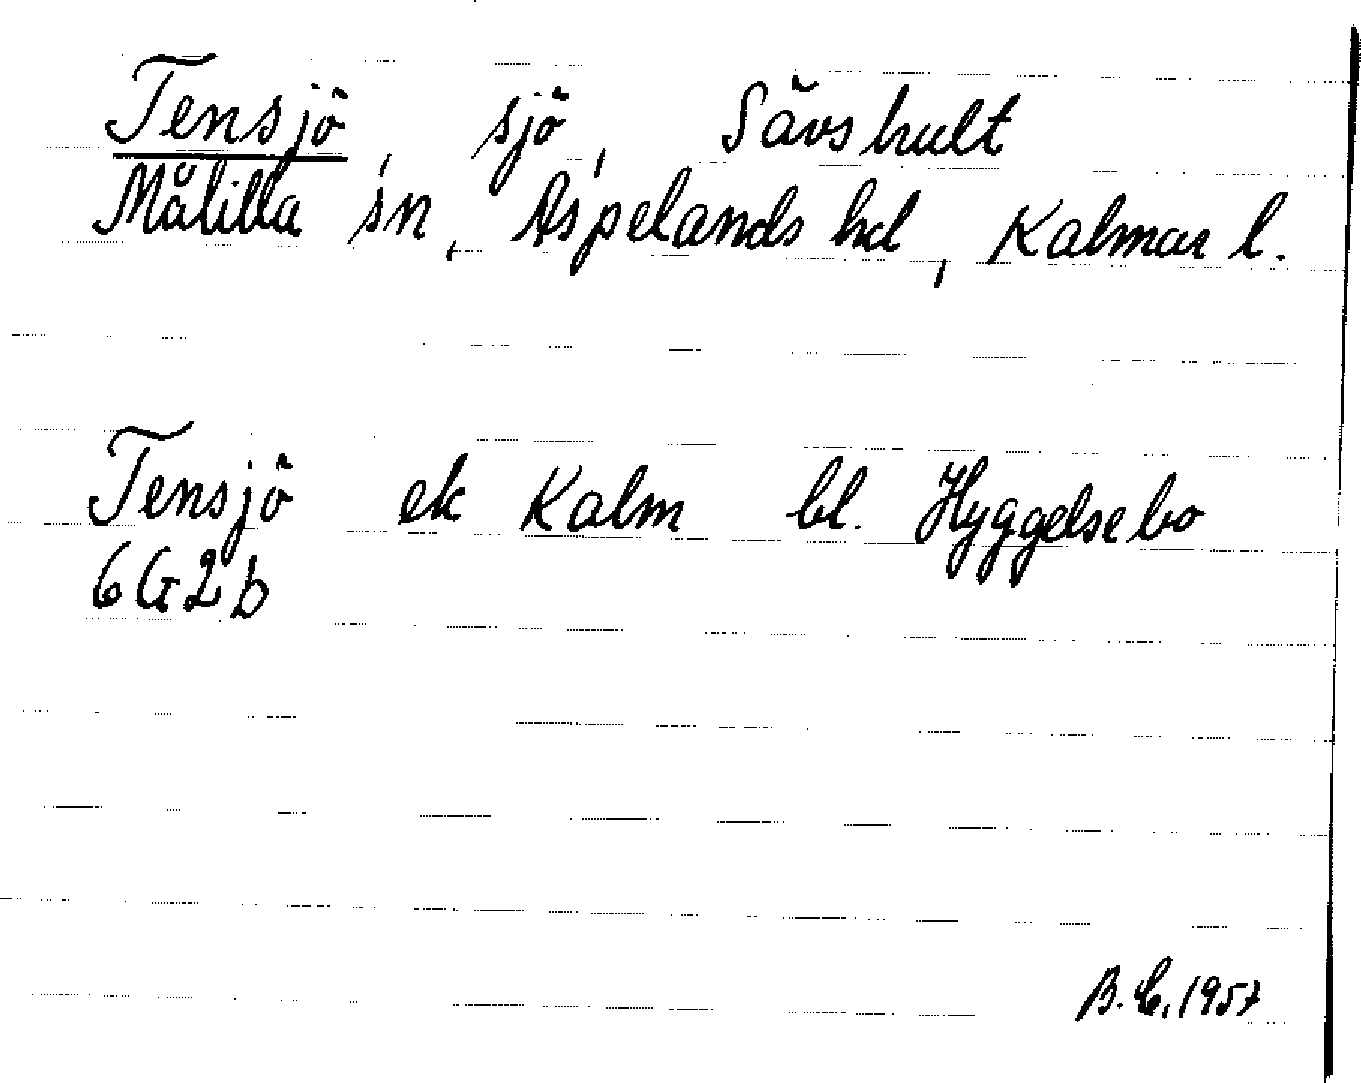 Tensjö, sjö, Sävshult
Målilla sn, Aspelands hd, Kalmar l.
Tensjö ek Kalm bl. Hyggelsebo
6G2b
B.E.1957